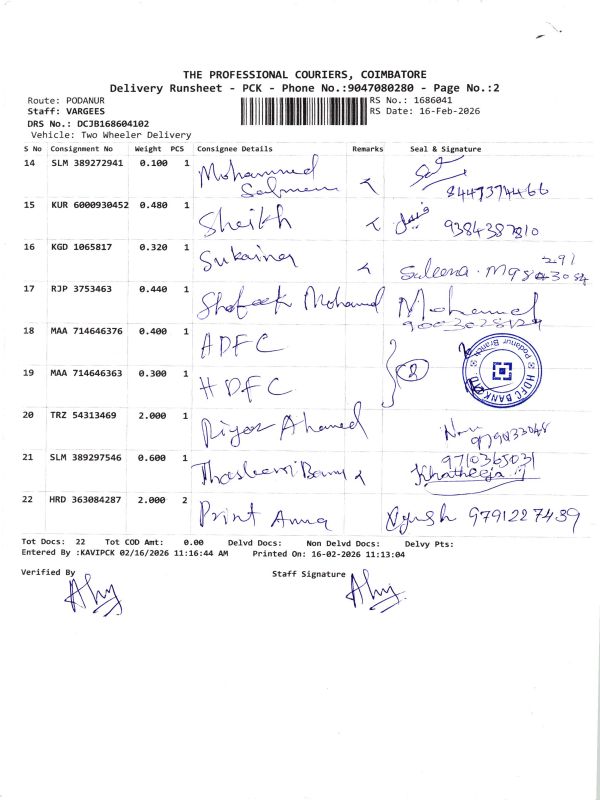 THE PROFESSIONAL COURIERS, COIMBATORE
Delivery Runsheet - PCK - Phone No.:9047080280 - Page No.:2
Route: PODANUR
Staff: VARGEES
DRS No.: DCJB168604102
Vehicle: Two Wheeler Delivery
RS No.: 1686041
RS Date: 16-Feb-2026
S No Consignment No Weight PCS Consignee Details Remarks Seal & Signature
14 SLM 389272941 0.100 1 Mohammed Salman 8447374466
15 KUR 6000930452 0.480 1 Sheikh فيصل
16 KGD 1065817 0.320 1 Sukaina Saleena
17 RJP 3753463 0.440 1 Shafeek Mohamed Mohamed
18 MAA 714646376 0.400 1 HDFC
19 MAA 714646363 0.300 1 HDFC 2 HDFC BANK LTD Podanur Branch
20 TRZ 54313469 2.000 1 Riyaz Ahamed
21 SLM 389297546 0.600 1 Thasleem Banu 9710365031 Khatheeja
22 HRD 363084287 2.000 2 Print Anna Ayush 9791227439
Tot Docs: 22 Tot COD Amt: 0.00 Delvd Docs: Non Delvd Docs: Delvy Pts:
Entered By :KAVIPCK 02/16/2026 11:16:44 AM Printed On: 16-02-2026 11:13:04
Verified By
Staff Signature